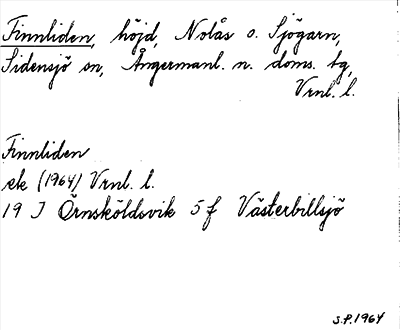 Finnliden, höjd, Nolås o. Sjögarn,
Sidensjö sn, Ångermanl. n. doms. tg,
Vrnl. l.
Finnliden
ek (1964) Vrnl. l.
19 J Örnsköldsvik 5 f Västerbillsjö
S.P. 1964